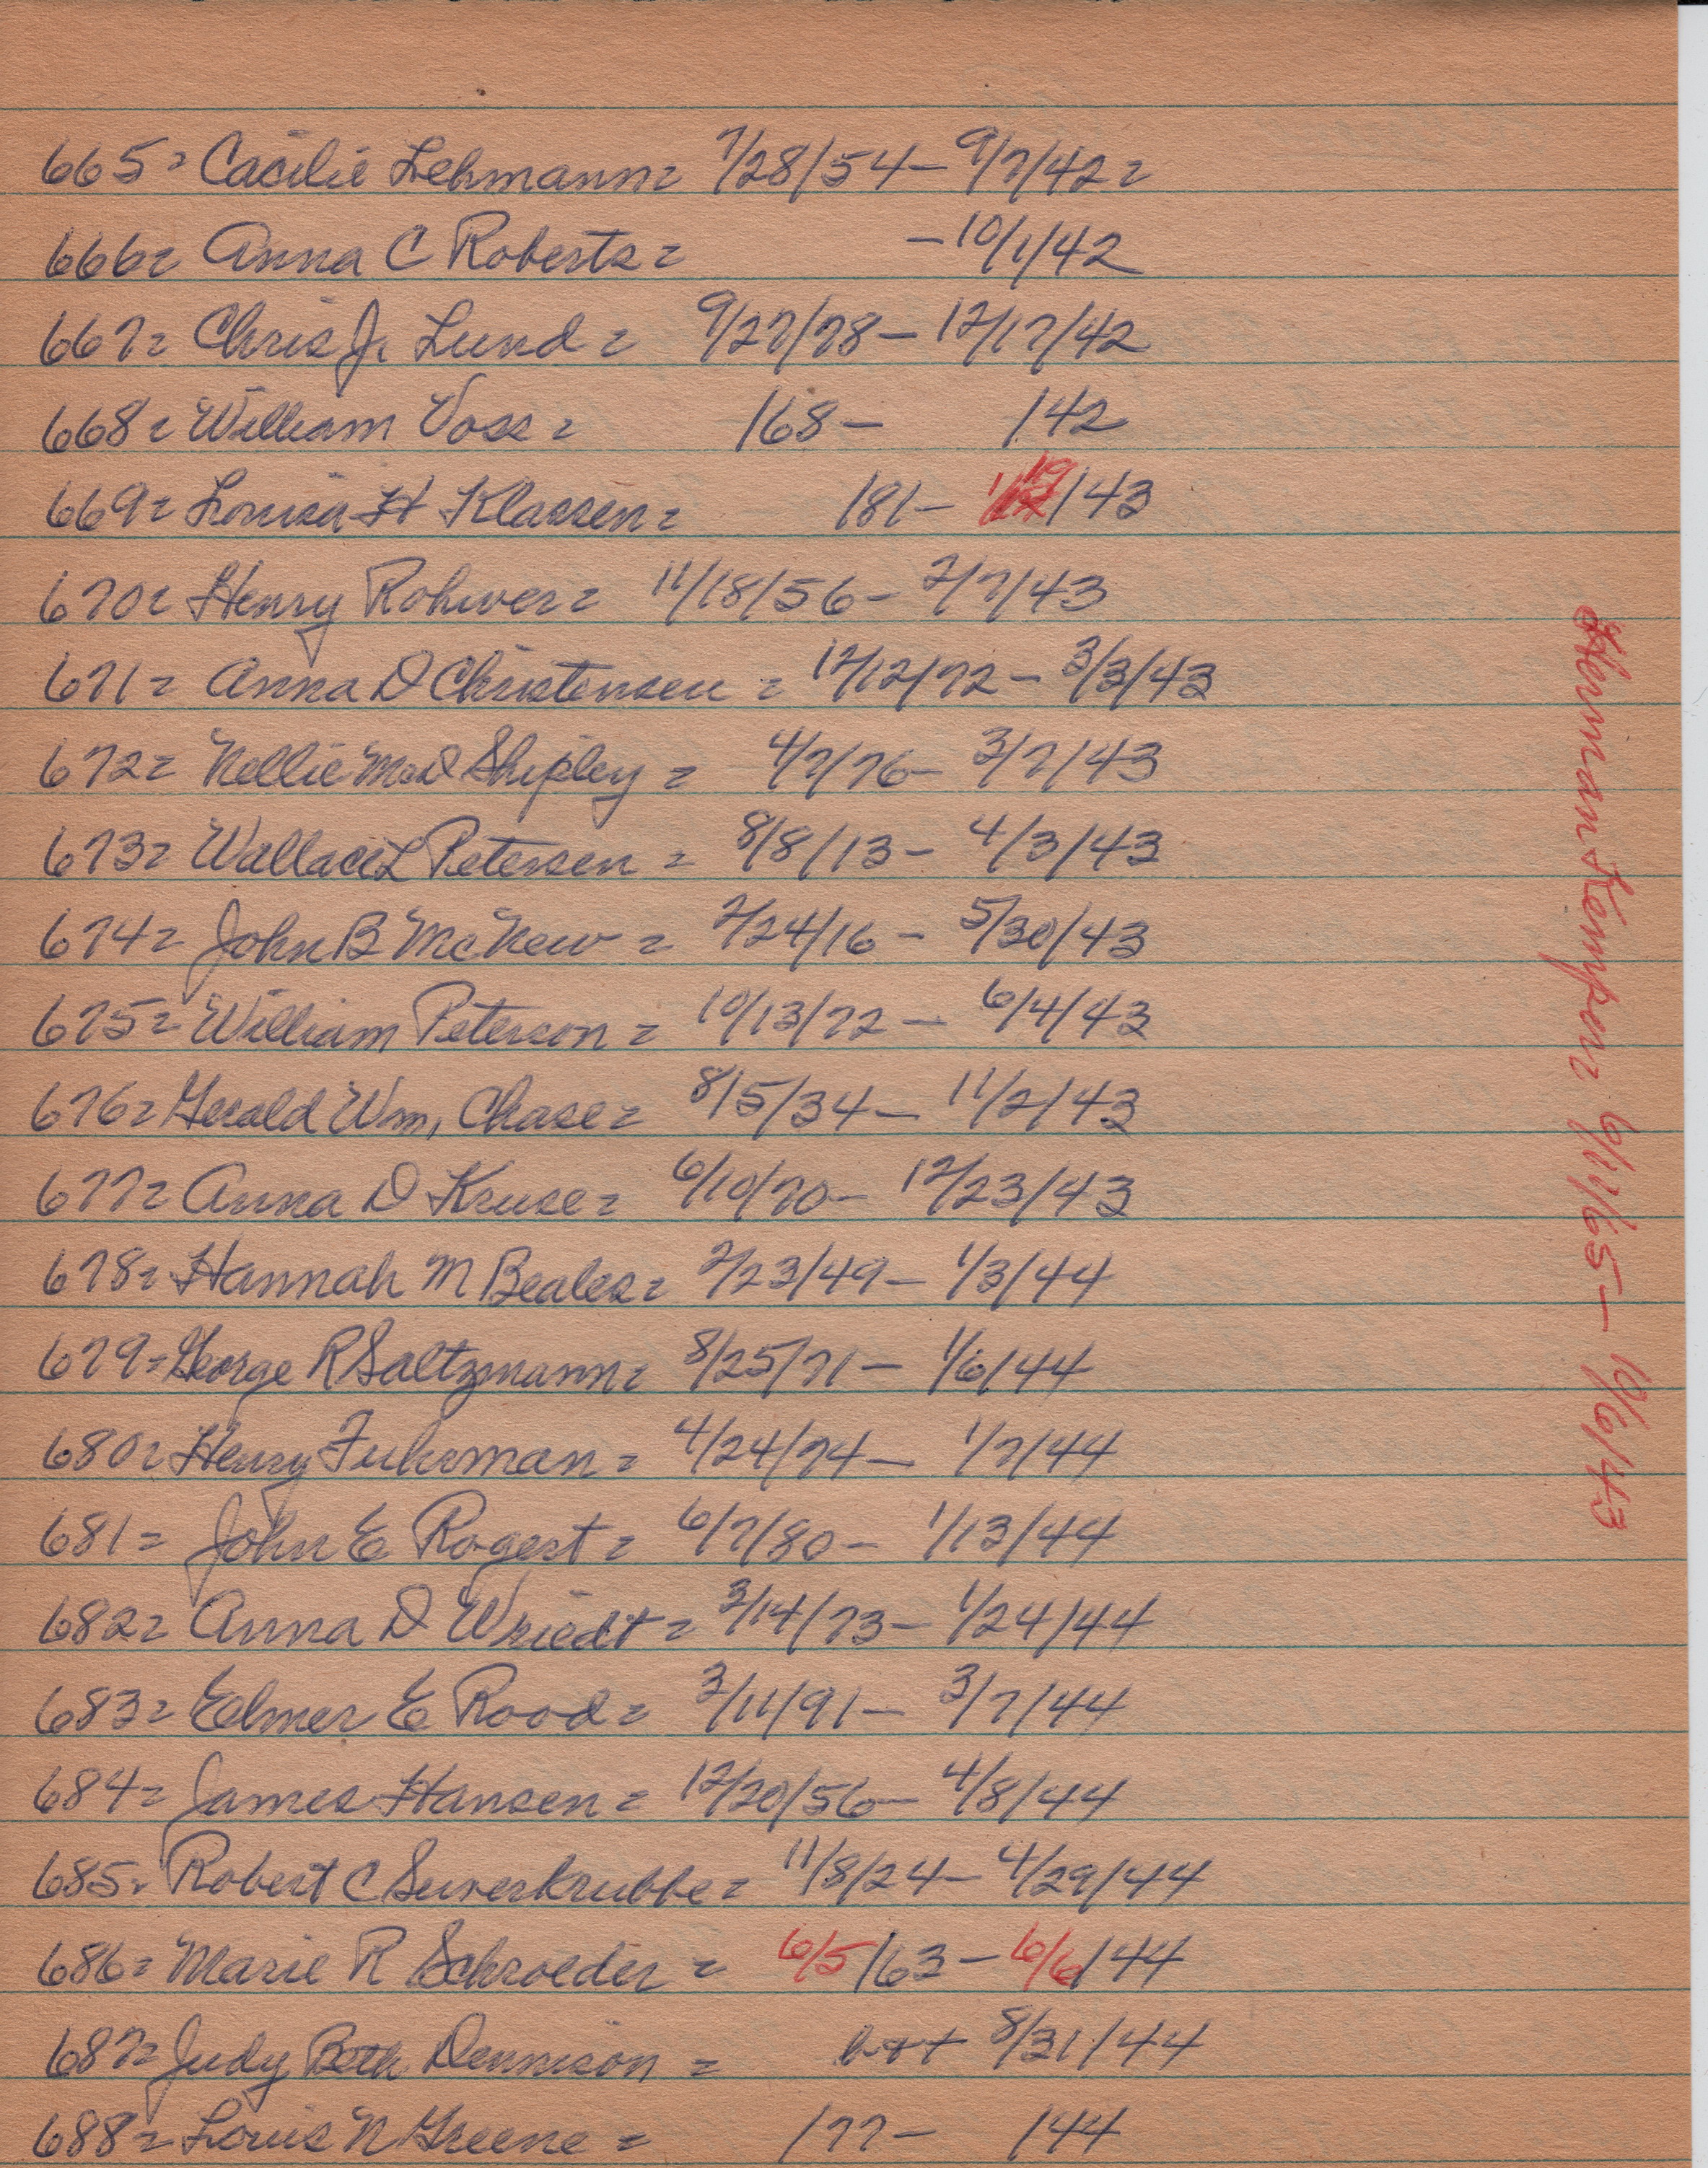 665= Cacilie Lehmann= 7/28/54- 9/7/42=
666= Anna C Roberts= -10/1/42
667= Chris J. Lund= 9/27/78- 12/17/42
668= William Voss= /68- /42
669= Louisa H Klassen= /81- /43
670= Henry Rohwer= 11/18/56- 2/7/43
671= Anna D Christensen= 12/12/72- 3/3/43
672= Nellie Mc D Shipley= 4/7/76- 3/7/43
673= Wallace L Petersen= 8/8/13- 4/3/43
674= John B McNew= 2/24/16- 5/30/43
675= William Peterson= 10/13/72- 6/4/43
676= Gerald Wm, Chase= 8/5/34- 11/2/43
677= Anna D Kruse= 6/10/70- 12/23/43
678= Hannah M Beales= 2/23/49- 1/3/44
679= George R Saltzmann= 8/25/71- 1/6/44
680= Henry Fuhrman= 4/24/74- 1/7/44
681= John E Rogert= 6/7/80- 1/13/44
682= Anna D Wriedt= 3/14/73- 1/24/44
683= Elmer E Rood= 3/11/91- 3/7/44
684= James Hansen= 12/20/56- 4/8/44
685= Robert C Suverkrubbe= 11/8/24- 4/29/44
686= Marie R Schroeder= 6/5/63- 6/6/44
687= Judy Beth Dennison= b+t 8/31/44
688= Louis N Greene= /77- /44
Herman Kempen 6/17/65- 10/6/43